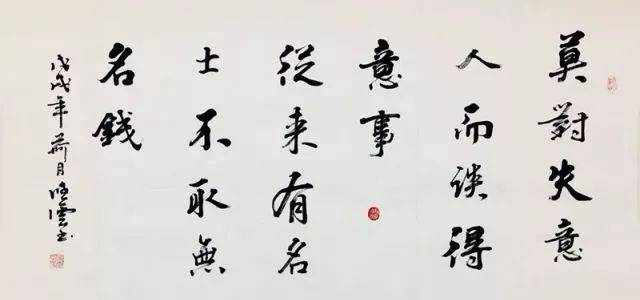 莫對失意
人而談得
意事
從来有名
士不取無
名錢
戊戌年月雲书